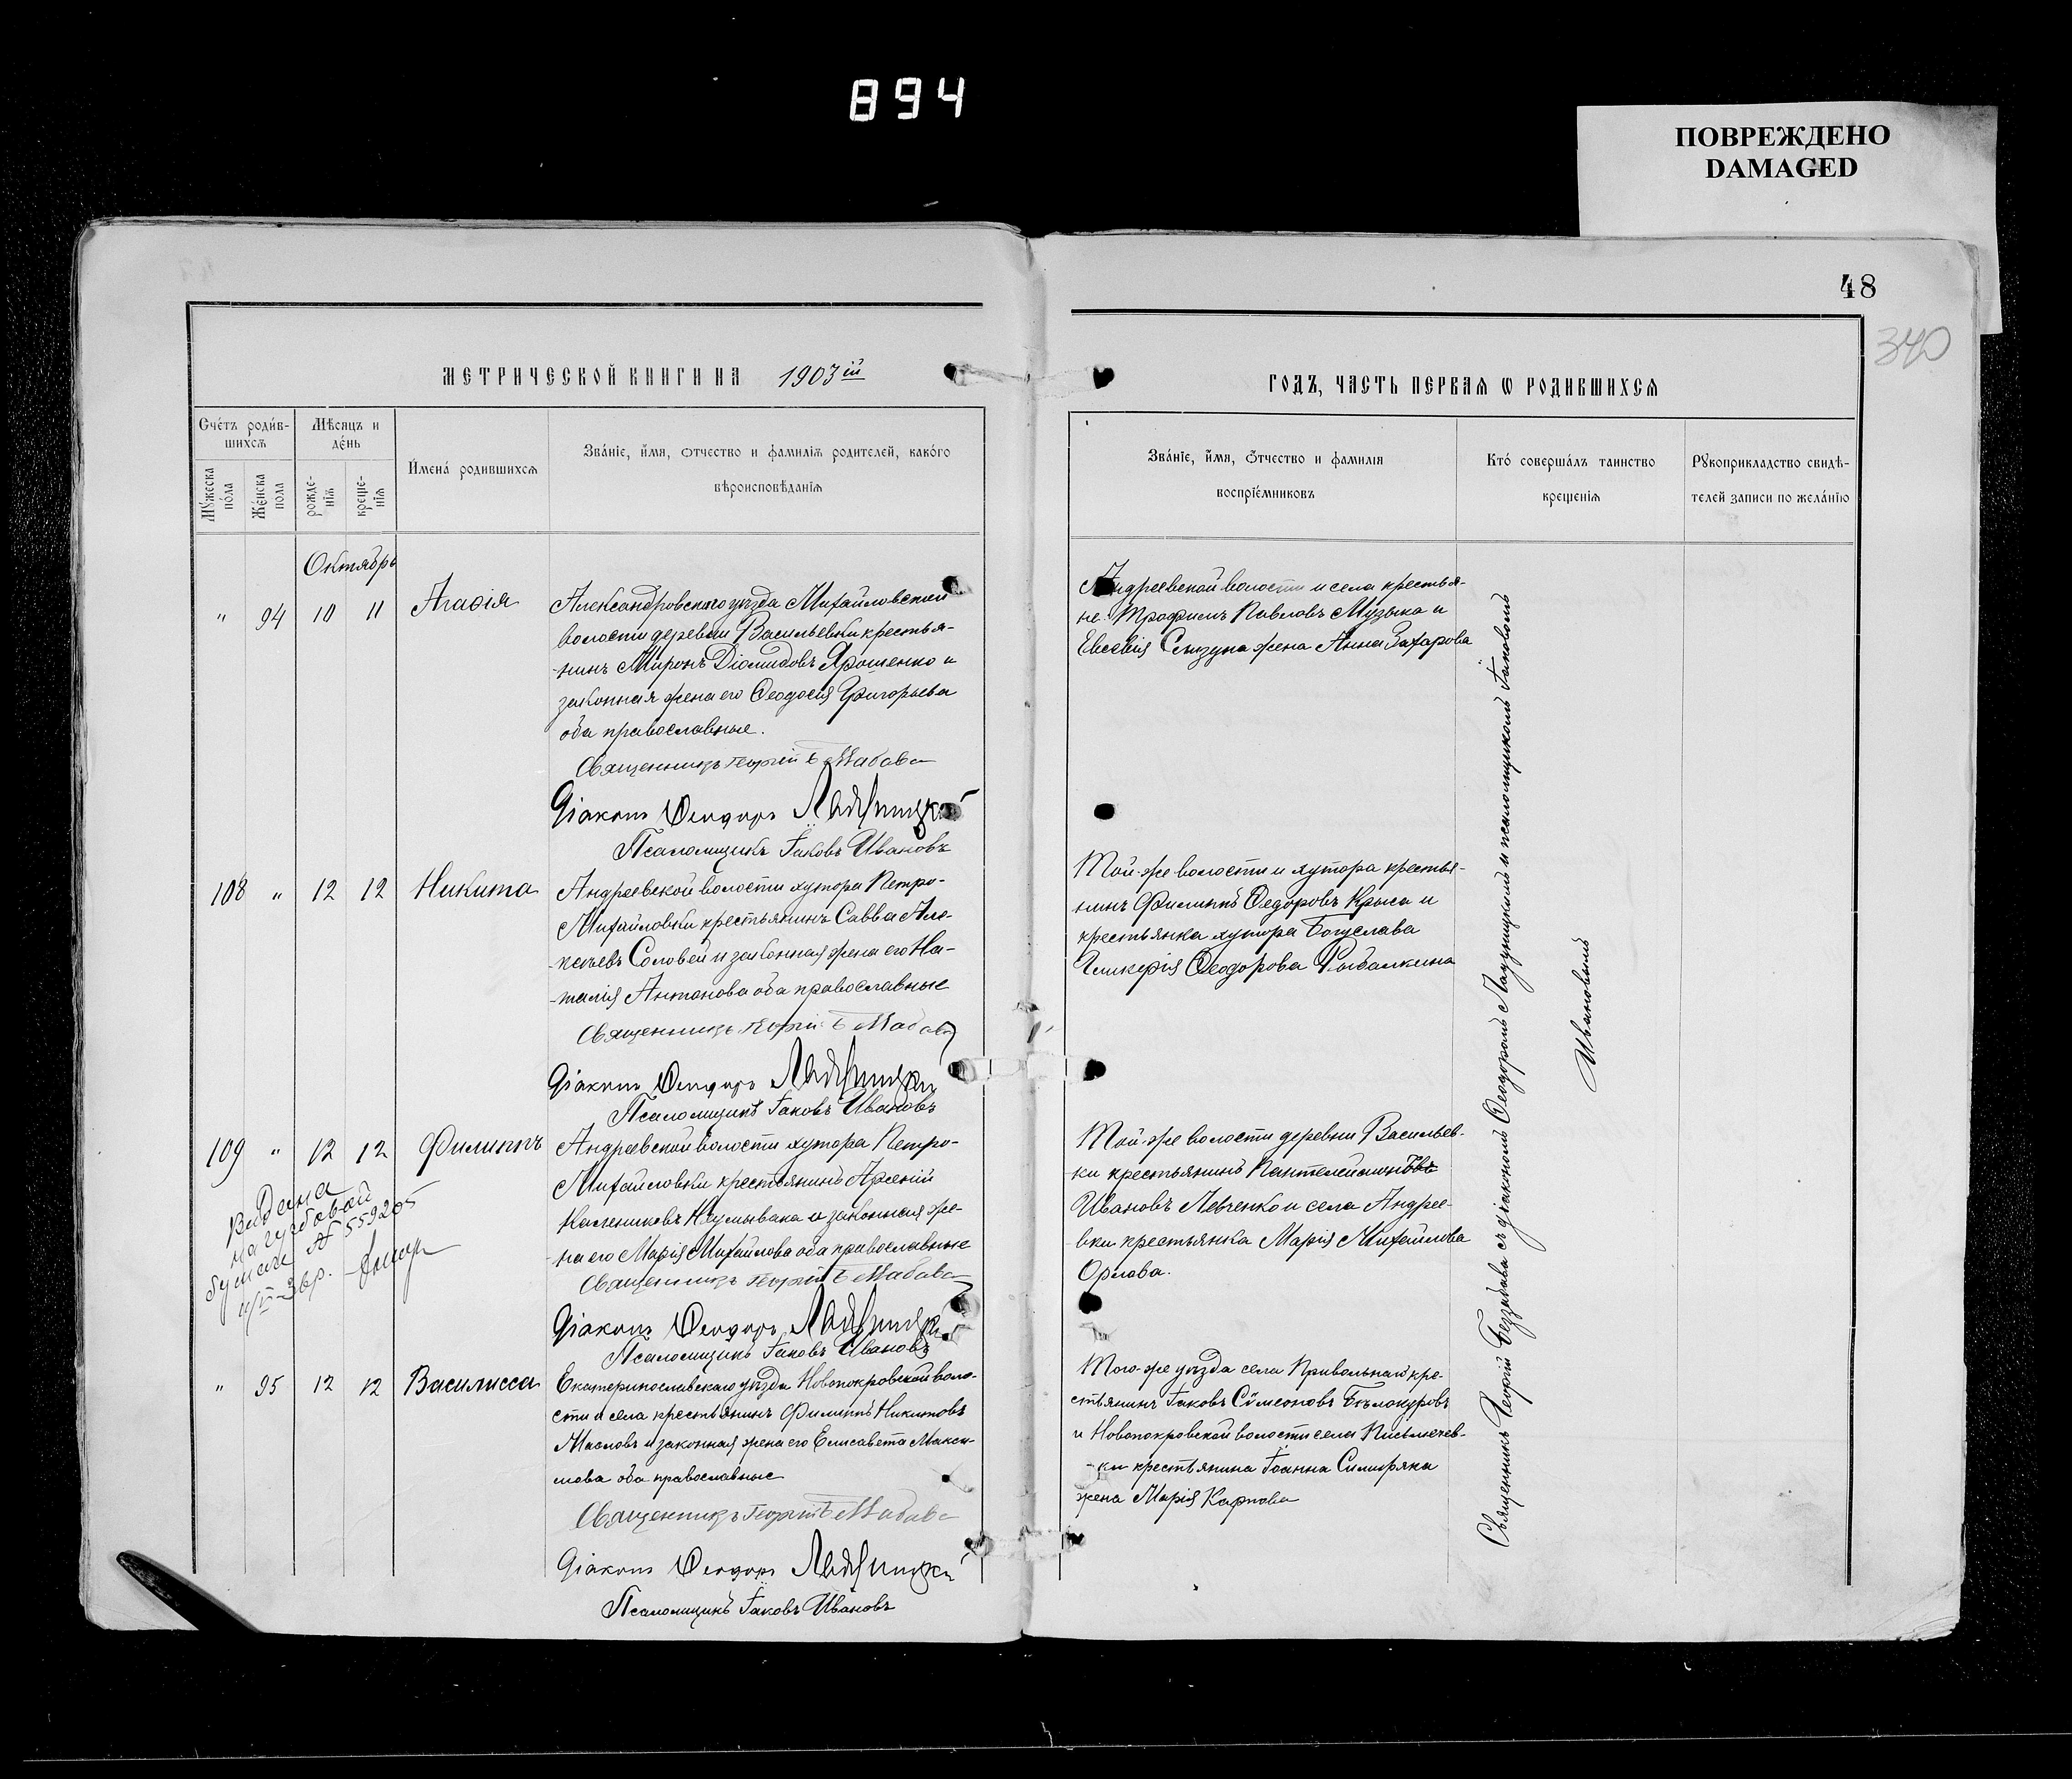 894
ПОВРЕЖДЕНО
DAMAGED
48
340
МЕТРИЧЕСКОЙ КНИГИ НА 1903ій
ГОДЪ, ЧАСТЬ ПЕРВАЯ Ѡ РОДИВШИХСЯ
Счетъ родив-
шихся
Мужеска
пола
Женска
пола
Мѣсяцъ и
день
рожде-
нія
креще-
нія
Имена родившихся
Званіе, имя, отчество и фамилія родителей, какого
вѣроисповѣданія
Званіе, имя, отчество и фамилія
воспріемниковъ
Кто совершалъ таинство
крещенія
Рукоприкладство свидѣ-
телей записи по желанію
Октябрь
" 94 10 11 Агаѳія
Александровскаго уѣзда Михайловской
волости деревни Васильевки крестья-
-нинъ Миронъ Діомидовъ Ярошенко и
законная жена его Ѳеодосія Григорьева
оба православные.
Священникъ Георгій
Діаконъ Ѳеодоръ
Псаломщикъ Іаковъ Ивановъ
Андреевской волости и села крестья-
не: Трофимъ Павловъ Музыка и
жена Анна Захарова
108 " 12 12 Никита
Андреевской волости хутора Петро-
Михайловки крестьянинъ Савва Але-
-ксѣевъ Соловей и законная жена его На-
-талія Антонова оба православные
Священникъ Георгій
Діаконъ Ѳеодоръ
Псаломщикъ Іаковъ Ивановъ
Той-же волости и хутора крестья-
нинъ Филиппъ Ѳедоровъ Крыса и
крестьянка хутора Богуслава
Гликерія Ѳеодорова Рыбалкина
109 " 12 12 Филиппъ
Андреевской волости хутора Петро-
Михайловки крестьянинъ Арсеній
и законная же-
на его Марія Михайлова оба православные
Священникъ Георгій
Діаконъ Ѳеодоръ
Псаломщикъ Іаковъ Ивановъ
Той-же волости деревни Васильев-
ки крестьянинъ Пантелеймонъ
Ивановъ Левченко и села Андрее-
вки крестьянка Марія Михайлова
Орлова.
Видана
на гербовой
бумаге № 559205
" 95 12 12 Василисса
Екатеринославскаго уѣзда Новопокровской воло-
сти и села крестьянинъ Филиппъ Никитовъ
Масловъ и законная жена его Елисавета Макси-
мова оба православные
Священникъ Георгій
Діаконъ Ѳеодоръ
Псаломщикъ Іаковъ Ивановъ
Того-же уѣзда села Привольнаго кре-
стьянинъ Іаковъ Сѵмеоновъ Бѣлокуровъ
и Новопокровской волости села
-ки крестьянина Іоанна
жена Марія Карпова
Священникъ Георгій съ діакономъ Ѳеодоромъ и псаломщикомъ Іаковомъ
Ивановымъ